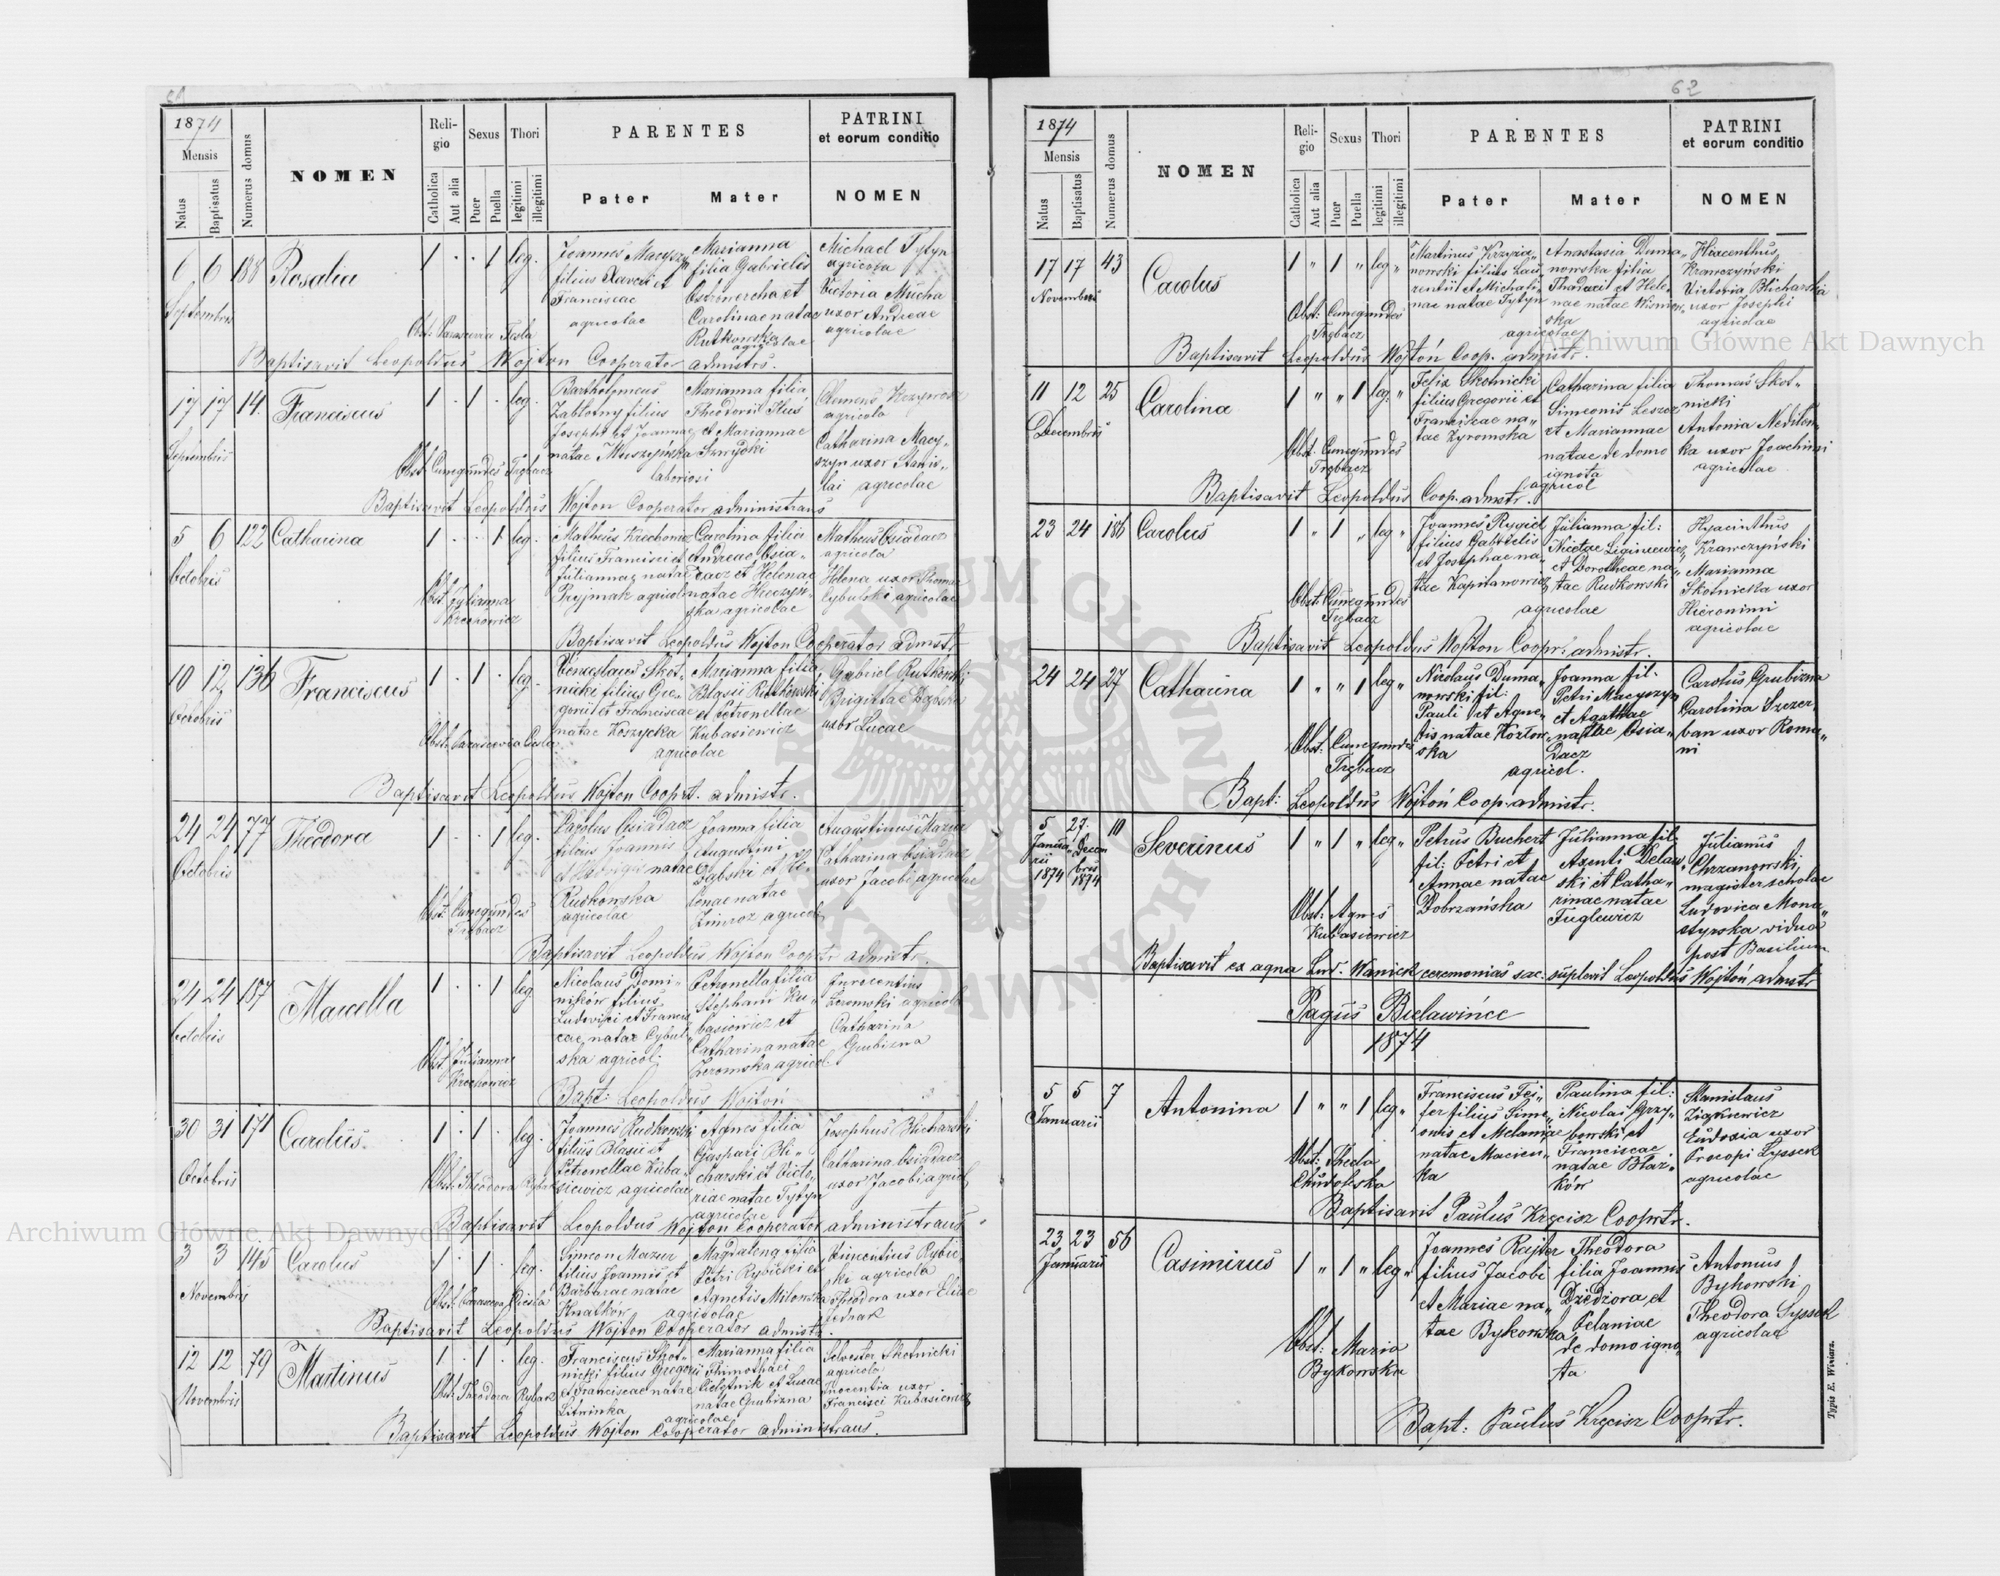 61
1874
Mensis
Natus
Baptisatus
Numerus domus
NOMEN
Religio
Catholica
Aut alia
Sexus
Puer
Puella
Thori
legitimi
illegitimi
PARENTES
Pater
Mater
PATRINI
et eorum conditio
NOMEN
6 6 188 Rosalia 1 . . 1 leg.
Septembris
Joannes Macyszyn
filius Xaverii et
Franciscae
agricolae
Marianna
filia Gabrielis
Ostrowercha et
Carolinae natae
Rutkowska
agricolae
Michael Tytyn
agricola
Victoria Mucha
uxor Andreae
agricolae
Obst: Parascevia Cesla
Baptisavit Leopoldus Wojton Cooperator admstrs.
17 17 14. Franciscus 1 . 1 . leg.
Septembris
Bartholomeus
Zabłotny filius
Josephi et Joannae
natae Muszyńska
Marianna filia
Theodorii Iluś
et Mariannae
Szwydki
laboriosi
Clemens Krzyworz
agricola
Catharina Macy-
szyn uxor Stanis-
lai agricolae
Obst. Cunegundes Trębacz
Baptisavit Leopoldus Wojton Cooperator administrans
5 6 122 Catharina 1 . . 1 leg.
Octobris
Matheus Krechowicz
filius Francisci et
Juliannae natae
Pryjmak agricol
Carolina filia
Andreae Osia-
dacz et Helenae
natae
agricolae
Matheus Osiadacz
agricola
Helena uxor Thomae
Cybulski agricolae
Obst Julianna
Krechowicz
Baptisavit Leopoldus Wojton Cooperator admstr
10 12 136 Franciscus 1 . 1 . leg.
Octobris
Venceslaus Skot-
nicki filius Gre-
gorii et Franciscae
natae Koszycka
Marianna filia
Blasii Rutkowski
et Petronellae
Kubasiewicz
agricolae
Gabriel Rutkowski
Brigittae
uxor Lucae
Obst. Parascevia Cesla
Baptisavit Leopoldus Wojton Coopert. admistr.
24 24 77 Theodora 1 . . 1 leg.
Octobris
Carolus Osiadacz
filius Joannis
et Hedvigis natae
Rudkowska
agricolae
Joanna filia
Augustini
Dąbski et He-
lenae natae
Zimroz agricol
Augustinus Mazur
Catharina Osiadacz
uxor Jacobi agricolae
Obst: Cunegundes
Trębacz
Baptisavit Leopoldus Wojton Cooptr admistr.
24 24 187 Marcella 1 . . 1 leg
Octobris
Nicolaus Domi-
ników filius
Ludovici et Francis
cae natae Cybul-
ska agricol:
Petronella filia
Stephani Ku-
basiewicz et
Catharina natae
Żeromska agricol
Innocentius
Żeromski agricola
Catharina
Grubizna
Obst. Julianna
Krechowicz
Bapt: Leopoldus Wojton
30 31 171 Carolus 1 . 1 . leg.
Octobris
Joannes Rudkowski
filius Blasii et
Petronellae Kuba-
siewicz agricolae
Agnes filia
Gaspari Bli-
charski et Victo-
riae natae Tytyn
agricolae
Josephus Blicharski
Catharina Osiadacz
uxor Jacobi agricol
Obst. Theodora Rybak
Baptisavit Leopoldus Wojton Cooperator administrans
3 3 145 Carolus 1 . 1 . leg.
Novembris
Simeon Mazur
filius Joannis et
Barbarae natae
Hnatków
Magdalena filia
Petri Rybicki et
Agnetis Milowska
agricolae
Vincentius Rybic
ki agricola
Theodora uxor Eliae
Jednak
Obst. Parascevia Ciesla
Baptisavit Leopoldus Wojton Cooperator admistr.
12 12 79 Martinus 1 . 1 . leg.
Novembris
Franciscus Skot-
nicki filius Gregorii
et Franciscae natae
Litwinka
Marianna filia
Thimothaei
et Lucae
natae Grubizna
agricolae
Silvester Skotnicki
agricola
Inocentia uxor
Francisci Kubasiewicz
Obst. Theodora Rybak
Baptisavit Leopoldus Wojton Cooperator administraus.
62
1874
Mensis
Natus
Baptisatus
Numerus domus
NOMEN
Religio
Catholica
Aut alia
Sexus
Puer
Puella
Thori
legitimi
illegitimi
PARENTES
Pater
Mater
PATRINI
et eorum conditio
NOMEN
17 17 43 Carolus 1 " 1 " leg "
Novembris
Martinus Krzyża-
nowski filius Lau-
rentii et Michali-
nae natae Tytyn
Anastasia Duma-
nowska filia
Thadaeii et Hele-
nae natae Wisniew
ska
agricolae
Hiacenthus
Krawczyński
Victoria Blicharska
uxor Josephi
agricolae
Obst: Cunegundes
Trębacz
Baptisavit Leopoldus Wojtoń Coop. admistr.
11 12 25 Carolina 1 " " 1 leg: "
Decembris
Felix Skotnicki
filius Gregorii et
Franciscae na-
tae Żyromska
Catharina filia
Simeonis Leszcz
et Mariannae
natae de domo
ignota
agricol
Thomas Skot-
nicki
Antonia Nediłoń-
ka uxor Joachimi
agricolae
Obst: Cunegundes
Trębacz
Baptisavit Leopoldus Coop. admstr.
23 24 186 Carolus 1 " 1 " leg "
Joannes Rygiel
filius Gabrielis
et Josephae na-
tae Kapitanowicz
Julianna fil:
Nicolae Liginiewicz
et Dorotheae na-
tae Rudkowski
agricolae
Hyacinthus
Krawczyński
Marianna
Skotnicka uxor
Hieronimi
agricolae
Obst: Cunegundes
Trębacz
Baptisavit Leopoldus Wojton Coopr. admistr.
24 24 27 Catharina 1 " " 1 leg "
Nicolaus Duma-
nowski fil:
Pauli et Agne-
tis natae Kozłow-
ska
Joanna fil-
Petri Macyszyn
et Agathae
natae Osia-
dacz
agricol.
Carolus Grubizna
Carolina Szczer
ban uxor Roma-
ni
Obst: Cunegundes
Trębacz
Bapt: Leopoldus Wojtoń Coop. admistr.
5 27. 10 Severinus 1 " 1 " leg "
Janua- Decem
rii bris
1874 1874
Petrus Buchert
fil: Petri et
Annae natae
Dobrzańska
Julianna fil-
Axenti Delaw
ski et Catha-
rinae natae
Fuglewicz
Julianus
Chrzanowski
magister scholae
Ludovica Mona-
styrska vidua
post Basilium
Obst: Agnes
Kubasiewicz
Baptisavit ex aqua Lud. Wanick ceremonias sac. suplevit Leopoldus Wojtoń admstr
Pagus Bielawińce
1874
5 5 7 Antonina 1 " " 1 leg "
Januarii
Franciscus Fei-
fer filius Sime-
onis et Melaniae
natae Macien-
ka
Paulina fil:
Nicolai Grzy-
bowski et
Franciscae
natae Błaż-
ków
Stanislaus
Ziębkiewicz
Eudoxia uxor
Procopi Łyssek
agricolae
Obst: Thecla
Chudolska
Baptisavit Paulus Kręcisz Cooprtr.
23 23 56 Casimirus 1 " 1 " leg "
Januarii
Joannes Rajter
filius Jacobi
et Mariae na-
tae Bykowska
Theodora
filia Joannis
Dziedziora et
Pelaniae
de domo igno-
ta
Antonius
Bykowski
Theodora Łyssek
agricolae
Obst: Maria
Bykowska
Bapt: Paulus Kręcisz Cooprtr.
Typis E. Winiarz.
Archiwum Główne Akt Dawnych
Archiwum Główne Akt Dawnych
ARCHIWUM GŁÓWNE AKT DAWNYCH